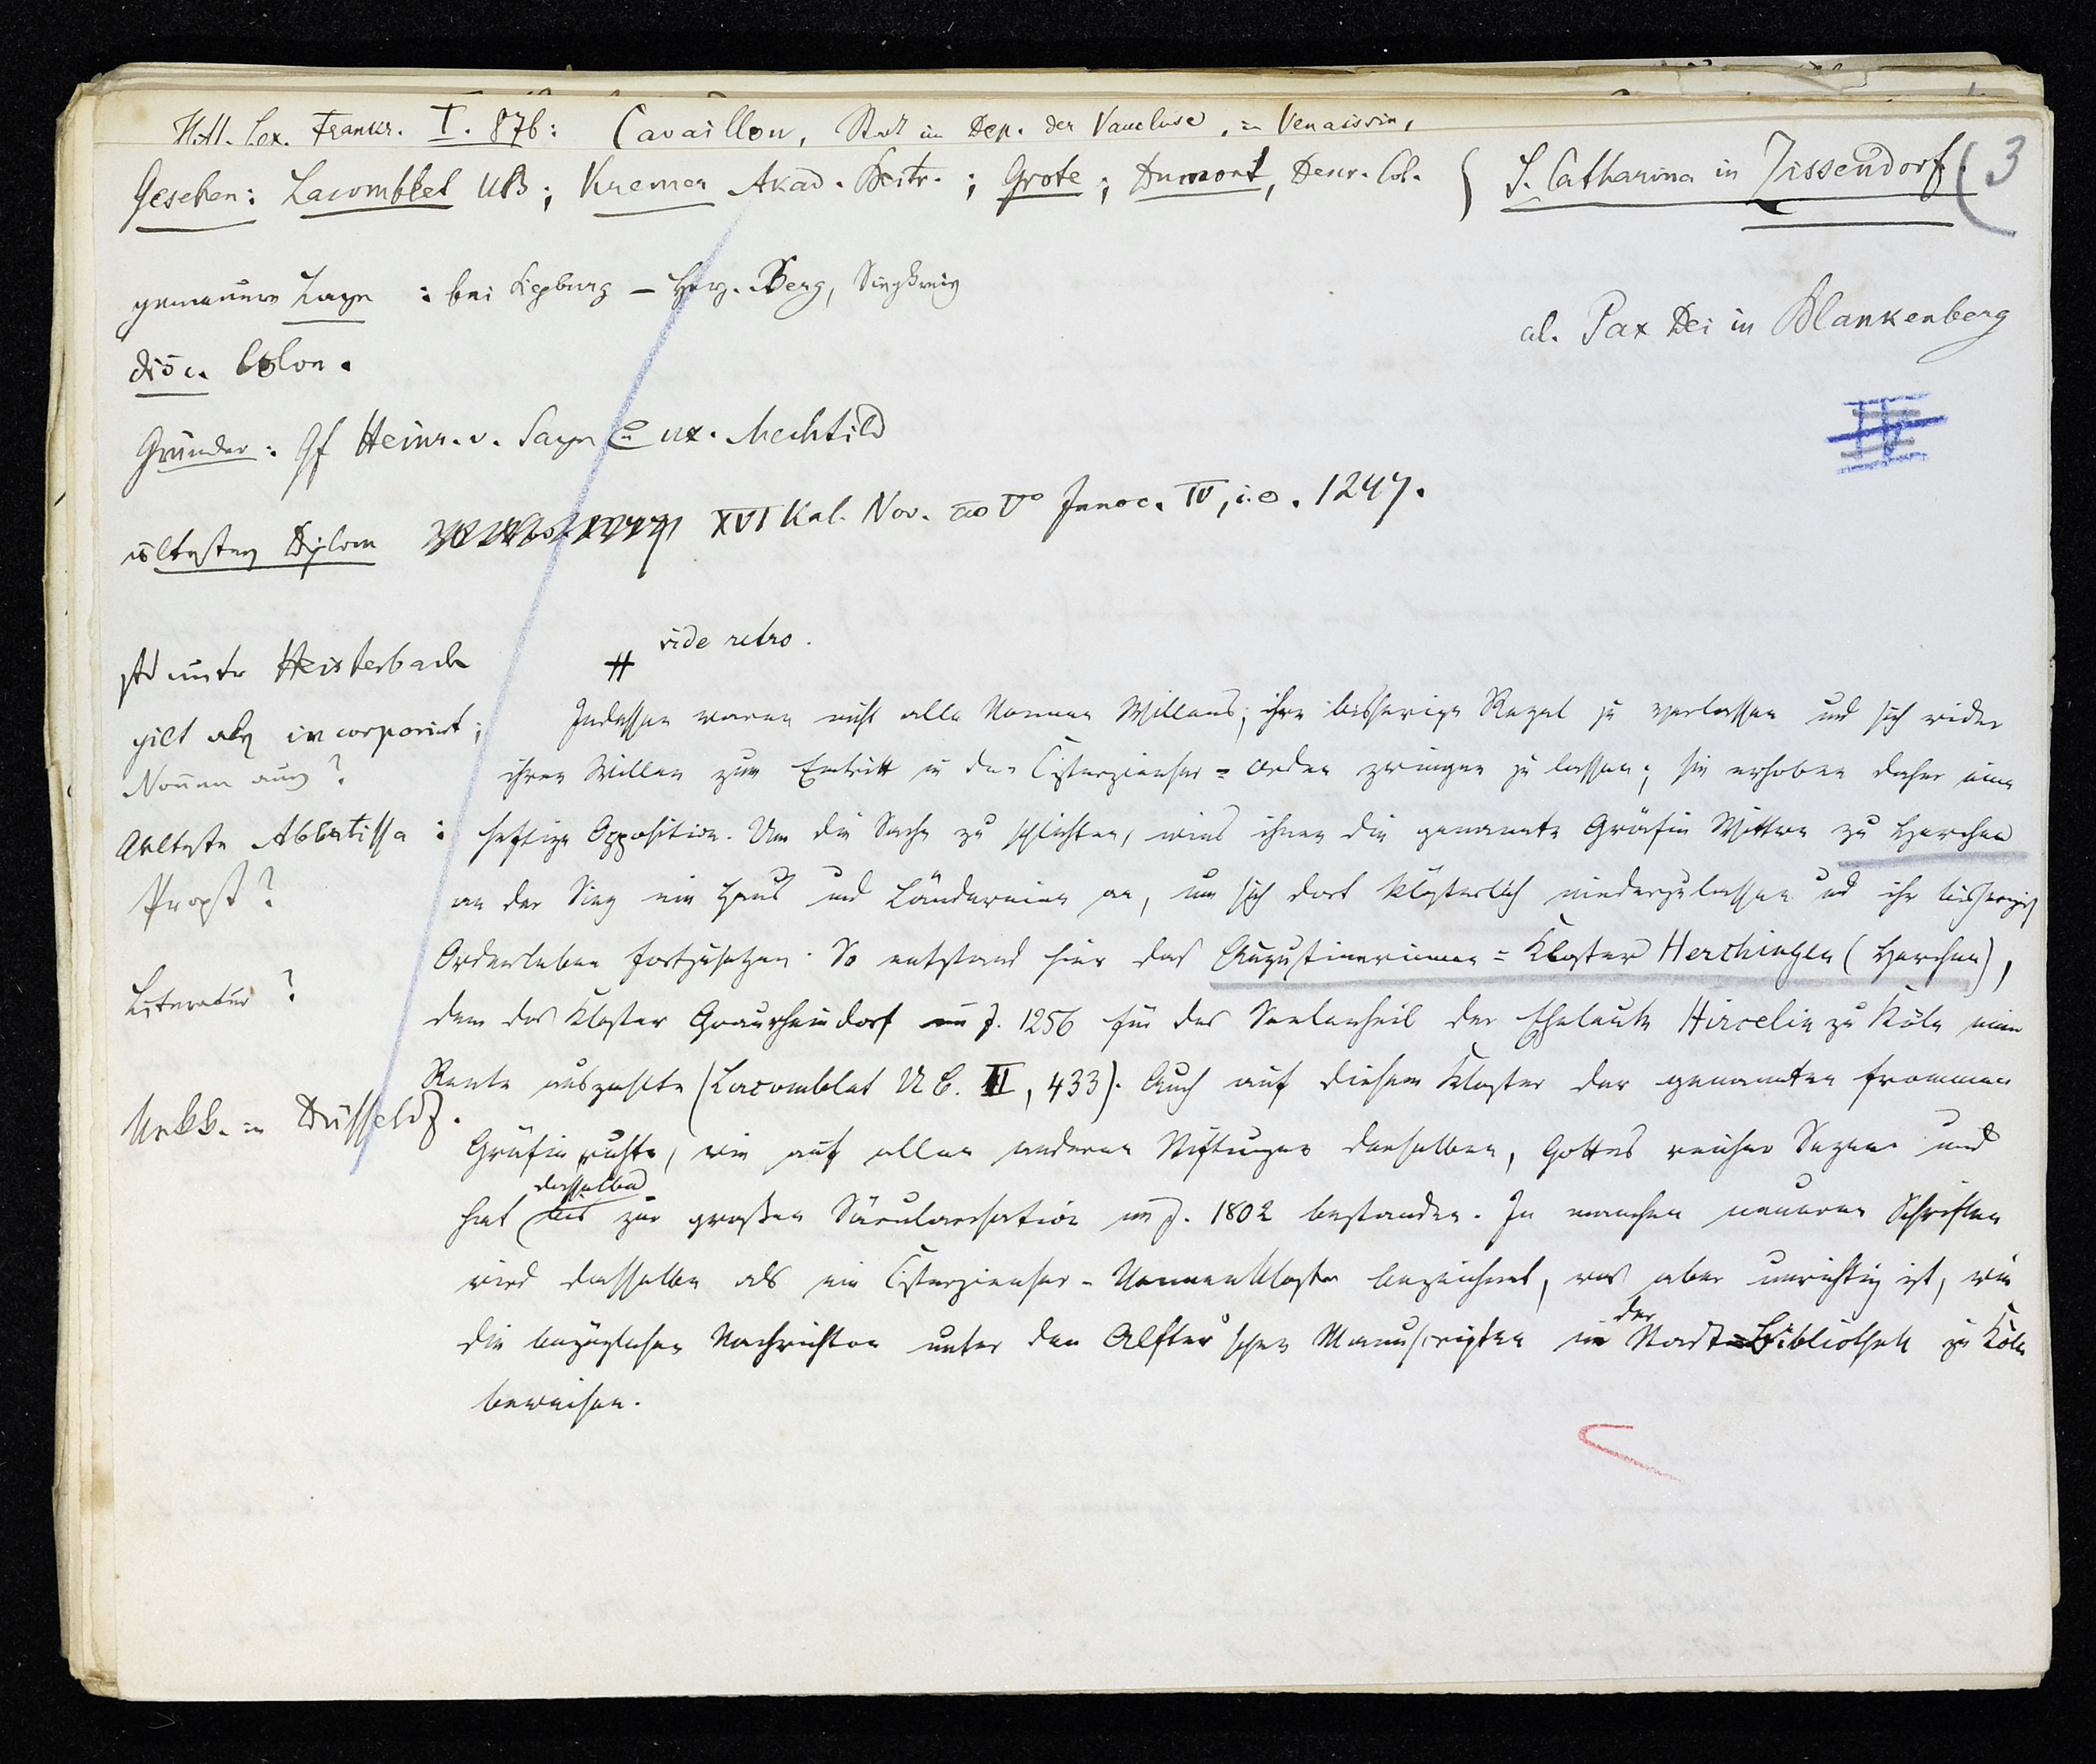 Hist. Lex. Frankr. I. 876: Cavaillon, Stadt im Dep. der Vaucluse, in Venaissin,
Gesehen: Lacomblet UB; Kremer Akad. Beitr.; Grote; Dumont, Descr. Col. S. Catharina in Zissendorf. 3
genauere Lage : bei Siegburg – Herz. Berg, Siegkreis
al. Pax Dei in Blankenberg
Diöc. Colon.
Gründer: Gf Heinr. v. Sayn & ux. Mechtild
IV
ältestes Diplom XVI Kal. Nov. ao Vo Innoc. IV, i.e. 1247.
vide retro.
std unter Heisterbach
gilt als incorporirt;
Nonnen aus?
Aelteste Abbatissa:
Propst?
Literatur?
Urkk. in Düsseldf.
Indessen waren nicht alle Nonnen Willens, ihre bisherige Regel zu verlassen und sich wider
ihren Willen zum Eintritt in den Cisterzienser-Orden zwingen zu lassen; sie erhoben daher eine
heftige Opposition. Um die Sache zu schlichten, wies ihnen die genannte Gräfin Wittwe zu Herchen
an der Sieg ein Haus und Ländereien an, um sich dort klösterlich niederzulassen und ihr bisheriges
Ordensleben fortzusetzen. So entstand hier das Augustinerinnen-Kloster Herchingen (Herchen),
dem das Kloster Graurheindorf im J. 1256 für das Seelenheil der Eheleute Hircelin zu Köln eine
Rente auszahlte (Lacomblet U B. II, 433). Auch auf diesem Kloster der genannten frommen
Gräfin ruhte, wie auf allen anderen Stiftungen derselben, Gottes reicher Segen und
hat dasselbe bis zur großen Säcularisation im J. 1802 bestanden. In manchen neueren Schriften
wird dasselbe als ein Cisterzienser-Nonnenkloster bezeichnet, was aber unrichtig ist, wie
die bezüglichen Nachrichten unter den Alfter'schen Manuscripten in der Stadt-Bibliothek zu Köln
beweisen.